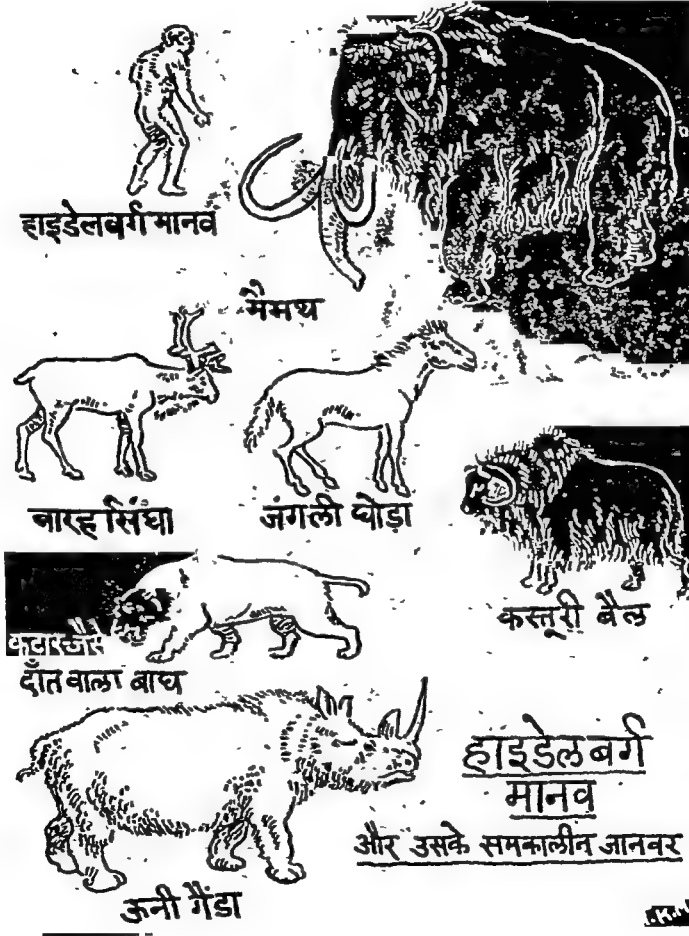 हाइडेलबर्ग मानव
मैमथ
बारहसिंघा
जंगली घोड़ा
कस्तूरी बैल
कटार जैसे
दाँत वाला बाघ
हाइडेलबर्ग
मानव
और उसके समकालीन जानवर
ऊनी गैंडा